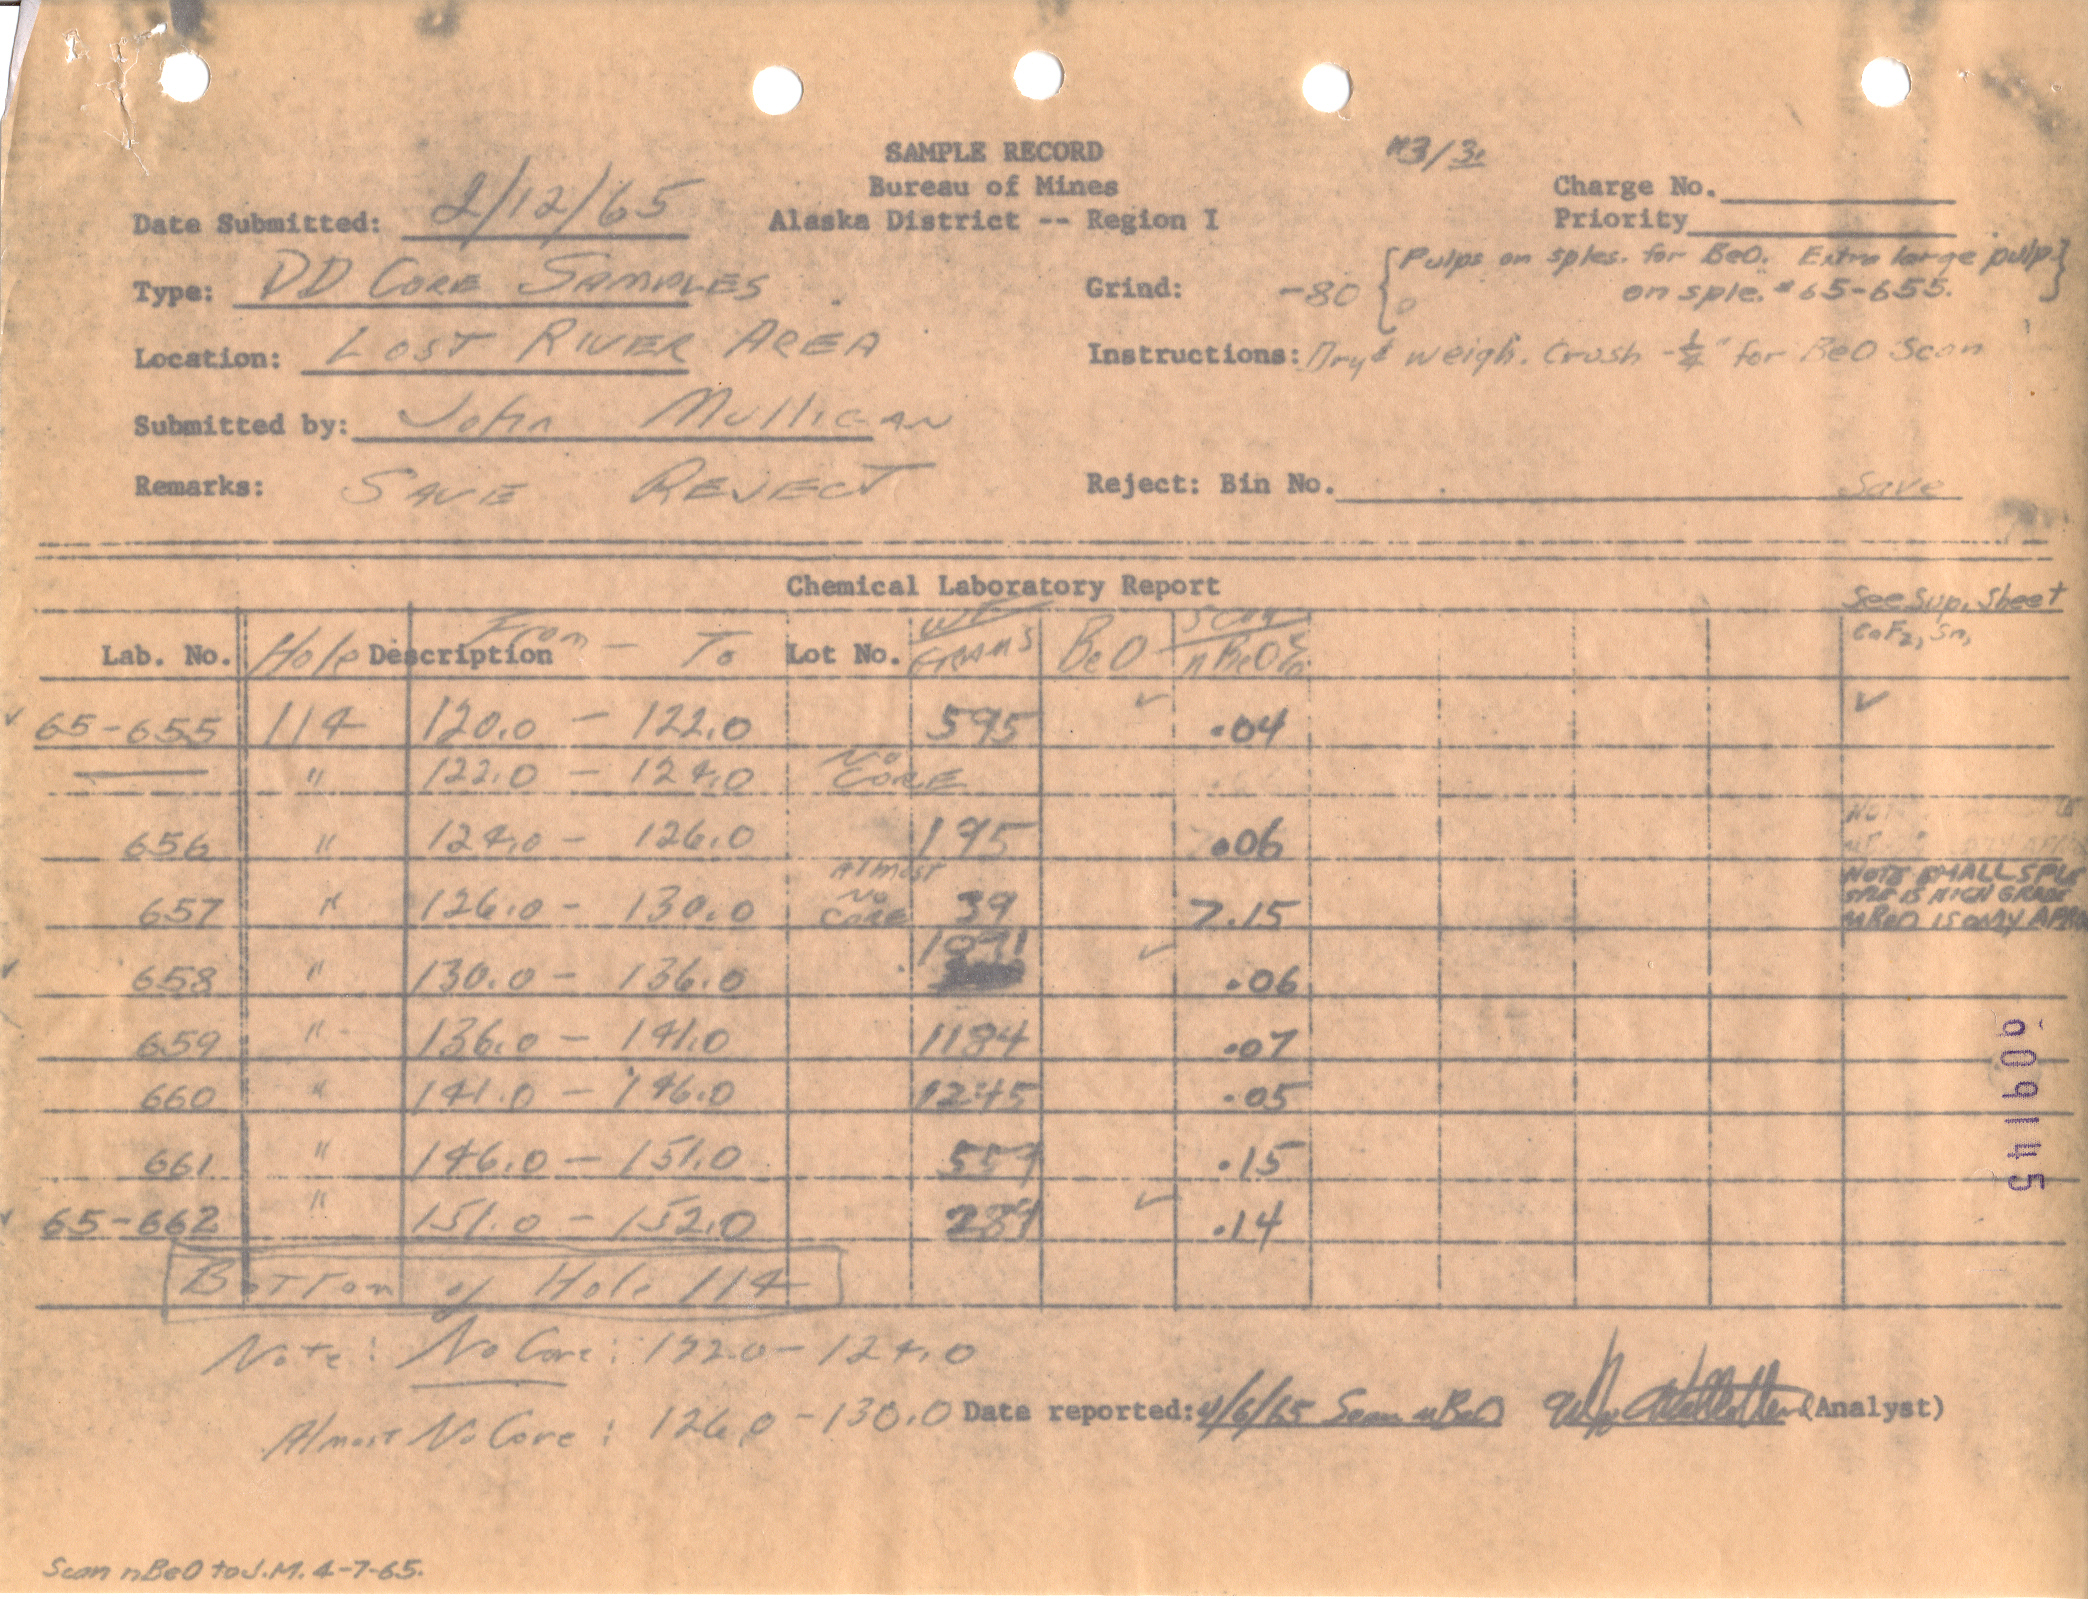 SAMPLE RECORD
Bureau of Mines
Alaska District -- Region I
Charge No.
Priority
Date Submitted: 2/12/65
Type: DD CORE SAMPLES
Grind: -80 {Pulps on sples. for BeO. Extra large pulp
on sple. #65-655.}
Location: LOST RIVER AREA
Instructions: Dry & weigh. Crush -1/4" for BeO Scan
Submitted by: John MULLIGAN
Remarks: SAVE REJECT
Reject: Bin No. Save
Chemical Laboratory Report
See Sup. Sheet
Lab. No. Hole Description From - To Lot No. WT GRAMS BeO Scan nBeO % CaF2, Sn,
65-655 114 120.0 - 122.0 595 ✓ .04 ✓
— " 122.0 - 124.0 NO CORE
656 " 124.0 - 126.0 195 .06
657 " 126.0 - 130.0 Almost NO CORE 39 7.15 NOTE SMALL SPLE
SPLE IS HIGH GRADE
nBeO IS ONLY APPROX
658 " 130.0 - 136.0 1871 ✓ .06
659 " 136.0 - 141.0 1184 .07
660 " 141.0 - 146.0 1245 .05
661 " 146.0 - 151.0 559 .15
65-662 " 151.0 - 152.0 289 ✓ .14
Bottom of Hole 114
Note: No Core: 122.0 - 124.0
Almost No Core: 126.0 - 130.0
Date reported: 4/6/65 Scan nBeO (Analyst)
Scan nBeO to J.M. 4-7-65.
609145